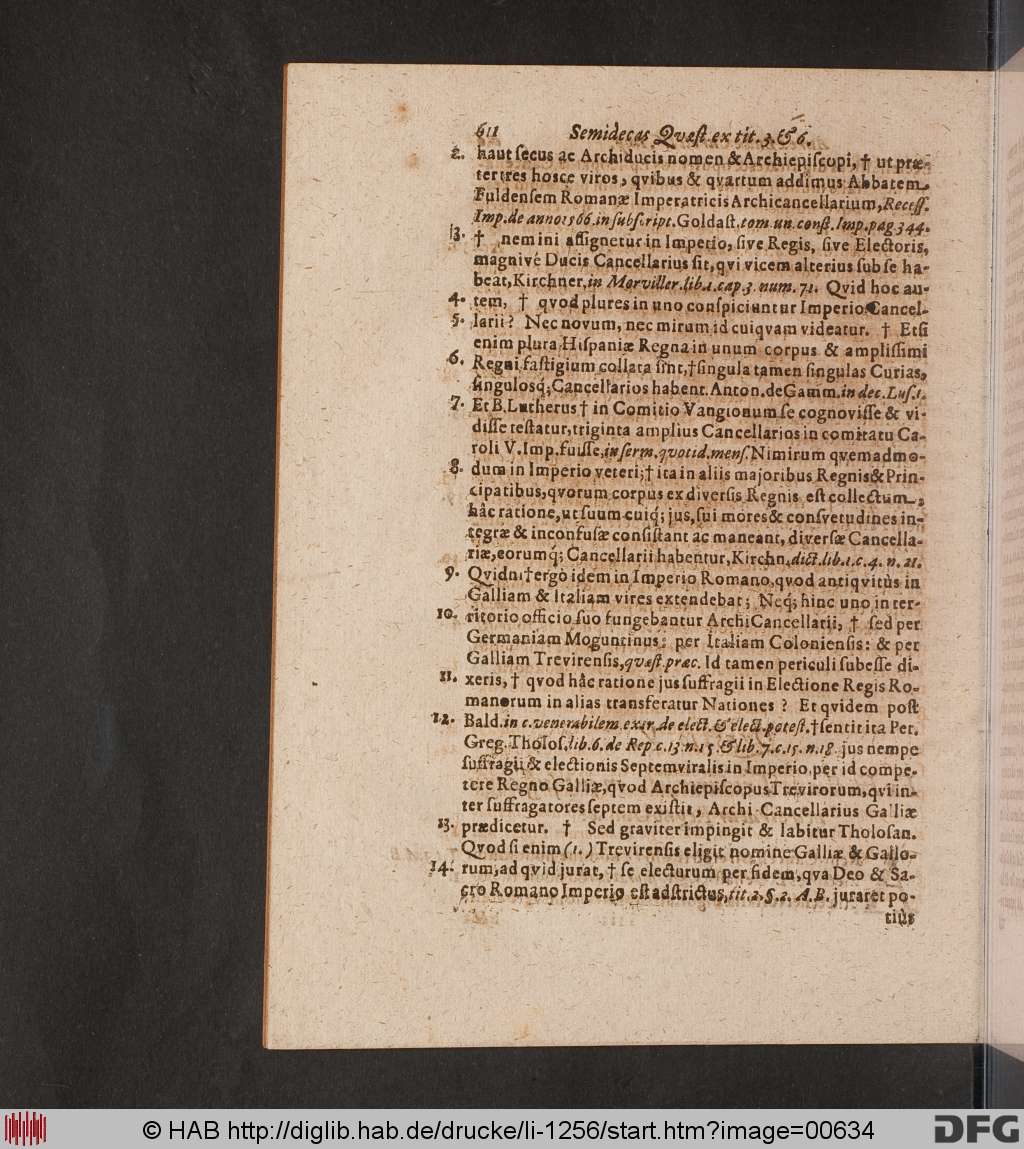 611 Semidecas Qvæst. ex tit. 3. & 6.
2. haut ſecus ac Archiducis nomen & Archiepiſcopi, † ut præ-
ter tres hosce viros, qvibus & qvartum addimus Abbatem
Fuldenſem Romanæ Imperatricis Archicancellarium, Receſſ.
Imp. de anno 1566. in ſubſcript. Goldaſt. tom. un. conſt. Imp. pag 344.
3. † nemini aſſignetur in Imperio, ſive Regis, ſive Electoris,
magnive Ducis Cancellarius ſit, qvi vicem alterius ſub ſe ha-
beat, Kirchner. in Morviller. lib. 1. cap. 3. num. 71. Qvid hoc au-
4. tem, † qvod plures in uno conſpiciuntur Imperio Cancel-
5. larii? Nec novum, nec mirum id cuiqvam videatur. † Etſi
enim plura Hiſpaniæ Regna in unum corpus & ampliſſimi
6. Regni faſtigium collata ſint, † ſingula tamen ſingulas Curias,
ſingulosq́; Cancellarios habent. Anton. de Gamm. in dec. Luſ. 1.
7. Et B. Lutherus † in Comitio Vangionum ſe cognoviſſe & vi-
diſſe teſtatur, triginta amplius Cancellarios in comitatu Ca-
roli V. Imp. fuiſſe, in ſerm. quotid. menſ. Nimirum qvemadmo-
8. dum in Imperio veteri; † ita in aliis majoribus Regnis & Prin-
cipatibus, qvorum corpus ex diverſis Regnis eſt collectum,
hâc ratione, ut ſuum cuiq; jus, ſui mores & conſvetudines in-
tegræ & inconfuſæ conſiſtant ac maneant, diverſæ Cancella-
riæ, eorumq́; Cancellarii habentur, Kirchn. dict. lib. 1. c. 4. n. 21.
9. Qvidni † ergò idem in Imperio Romano, qvod antiqvitùs in
Galliam & Italiam vires extendebat; Neq; hinc uno in ter-
10. ritorio officio ſuo fungebantur ArchiCancellarii, † ſed per
Germaniam Moguntinus: per Italiam Colonienſis: & per
Galliam Trevirenſis, quæſt. præc. Id tamen periculi ſubeſſe di-
11. xeris, † qvod hâc ratione jus ſuffragii in Electione Regis Ro-
manorum in alias transferatur Nationes? Et qvidem poſt
12. Bald. in c. venerabilem. extr. de elect. & elect. poteſt. † ſentit ita Pet.
Greg. Tholoſ. lib. 6. de Rep. c. 13. n. 15. & lib. 7. c. 15. n. 18. jus nempe
ſuffragii & electionis Septemviralis in Imperio, per id compe-
tere Regno Galliæ, qvod Archiepiſcopus Trevirorum, qvi in-
ter ſuffragatores ſeptem exiſtit, Archi-Cancellarius Galliæ
13. prædicetur. † Sed graviter impingit & labitur Tholoſan.
Qvod ſi enim (1.) Trevirenſis eligit nomine Galliæ & Gallo-
14. rum, ad qvid jurat, † ſe electurum per fidem, qva Deo & Sa-
cro Romano Imperio eſt adſtrictus, tit. 2. §. 2. A. B. juraret po-
tiùs
© HAB http://diglib.hab.de/drucke/li-1256/start.htm?image=00634
DFG